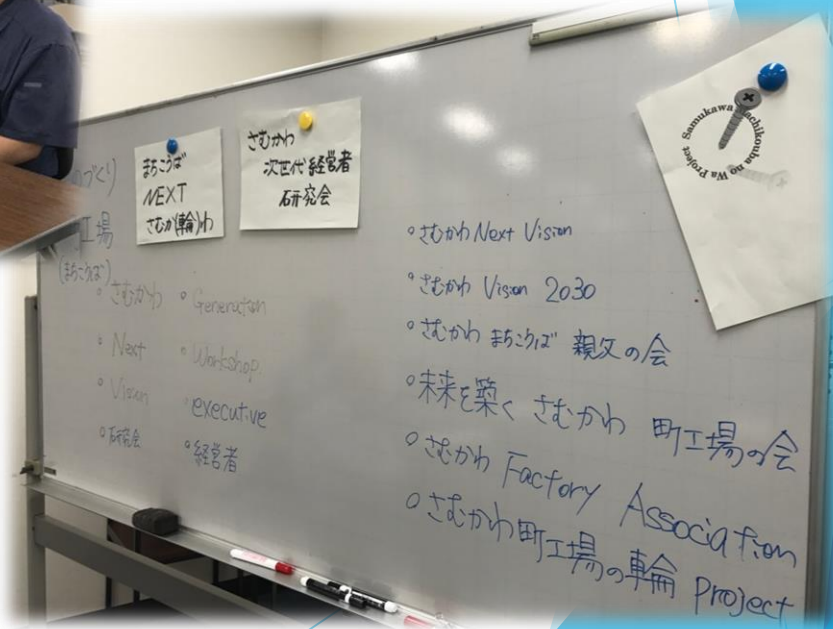 づくり
工場
(まちこうば)
まちこうば
NEXT
さむか(輪)わ
さむかわ
次世代経営者
研究会
Samukawa Machikouba no Wa Project
・さむかわ
・Next
・Vision
・研究会
・Generation
・Workshop
・executive
・経営者
・さむかわ Next Vision
・さむかわ Vision 2030
・さむかわ まちこうば 親父の会
・未来を築く さむかわ 町工場の会
・さむかわ Factory Association
・さむかわ町工場の輪 Project